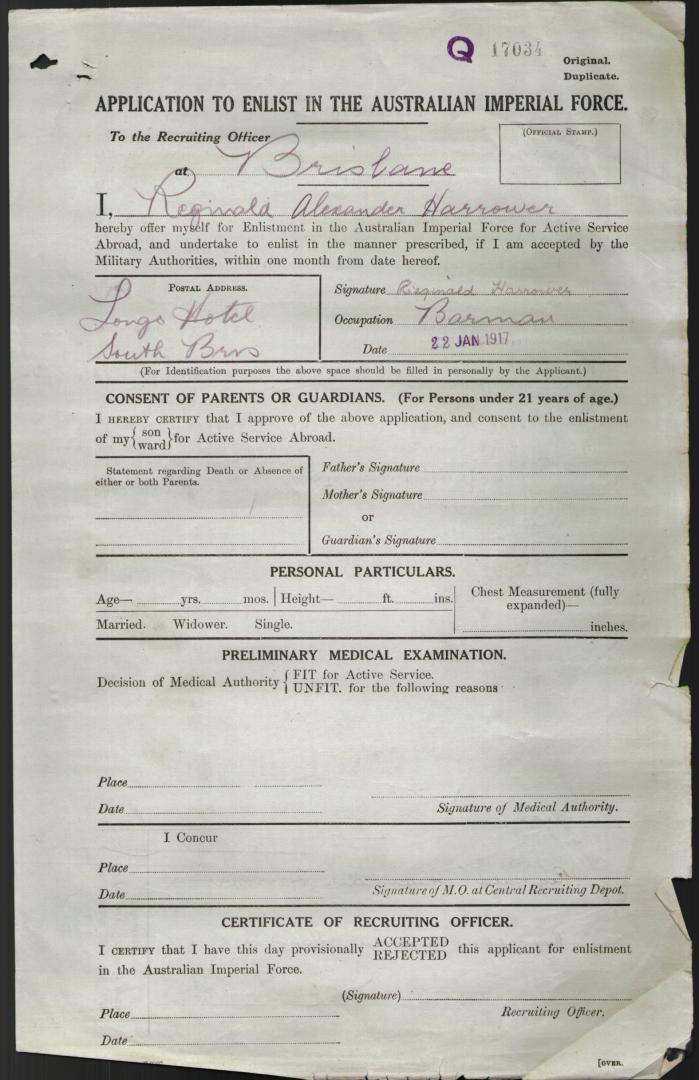 Q 17034
Original.
Duplicate.
APPLICATION TO ENLIST IN THE AUSTRALIAN IMPERIAL FORCE.
To the Recruiting Officer
(OFFICIAL STAMP.)
at Brisbane
I, Reginald Alexander Harrower
hereby offer myself for Enlistment in the Australian Imperial Force for Active Service
Abroad, and undertake to enlist in the manner prescribed, if I am accepted by the
Military Authorities, within one month from date hereof.
POSTAL ADDRESS.
Longs Hotel
South Bris
Signature Reginald Harrower
Occupation Barman
Date 22 JAN 1917
(For Identification purposes the above space should be filled in personally by the Applicant.)
CONSENT OF PARENTS OR GUARDIANS. (For Persons under 21 years of age.)
I HEREBY CERTIFY that I approve of the above application, and consent to the enlistment
of my {son ward} for Active Service Abroad.
Statement regarding Death or Absence of
either or both Parents.
Father's Signature
Mother's Signature
or
Guardian's Signature
PERSONAL PARTICULARS.
Age— yrs. mos. Height— ft. ins.
Chest Measurement (fully
expanded)—
inches.
Married. Widower. Single.
PRELIMINARY MEDICAL EXAMINATION.
Decision of Medical Authority { FIT for Active Service.
UNFIT. for the following reasons
Place
Date
Signature of Medical Authority.
I Concur
Place
Date
Signature of M.O. at Central Recruiting Depot.
CERTIFICATE OF RECRUITING OFFICER.
I CERTIFY that I have this day provisionally ACCEPTED REJECTED this applicant for enlistment
in the Australian Imperial Force.
(Signature)
Place
Recruiting Officer.
Date
[OVER.